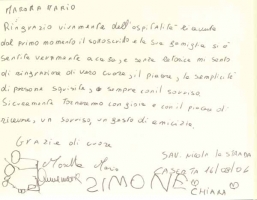 MAZARA MARIO
Ringrazio vivamente dell'ospitalità ricevuta
dal primo momento il sottoscritto e la sua famiglia si è
sentita veramente a casa, e sento mi sento
di ringraziare di vero cuore, il piacere, la semplicità
di persona squisita, e sempre con il sorriso.
Sicuramente torneremo con gioia e con il piacere di
ricevere, un sorriso, un gesto di amicizia.
Grazie di cuore
SAN NICOLA LA STRADA
CASERTA 16/08/06
SIMONE
CHIARA